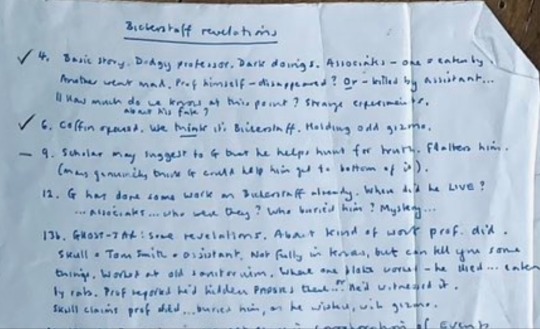 Bickerstaff revelations
✓ 4. Basic story. Dodgy professor. Dark doings. Associates - one eaten by
Another went mad. Prof himself - disappeared? Or - killed by assistant...
How much do we know at this point? Strange experiments.
about his fate?
✓ 6. Coffin opened. We think it's Bickerstaff. Holding odd gizmo.
– 9. Scholar may suggest to G that he helps hunt for truth. Flatters him.
(may genuinely think G could help him get to bottom of it).
12. G has done some work on Bickerstaff already. Where did he LIVE?
...associates... who were they? Who buried him? Mystery...
13b. GHOST-JAR: some revelations. About kind of work prof. did.
Skull = Tom Smith = assistant. Not fully in know, but can tell you some
things. Worked at old sanitorium. Where one bloke worked - he died... eaten
by rats. Prof reported he'd hidden PAPERS there... or he'd witnessed it.
Skull claims prof died... buried him, as he wished, with gizmo.